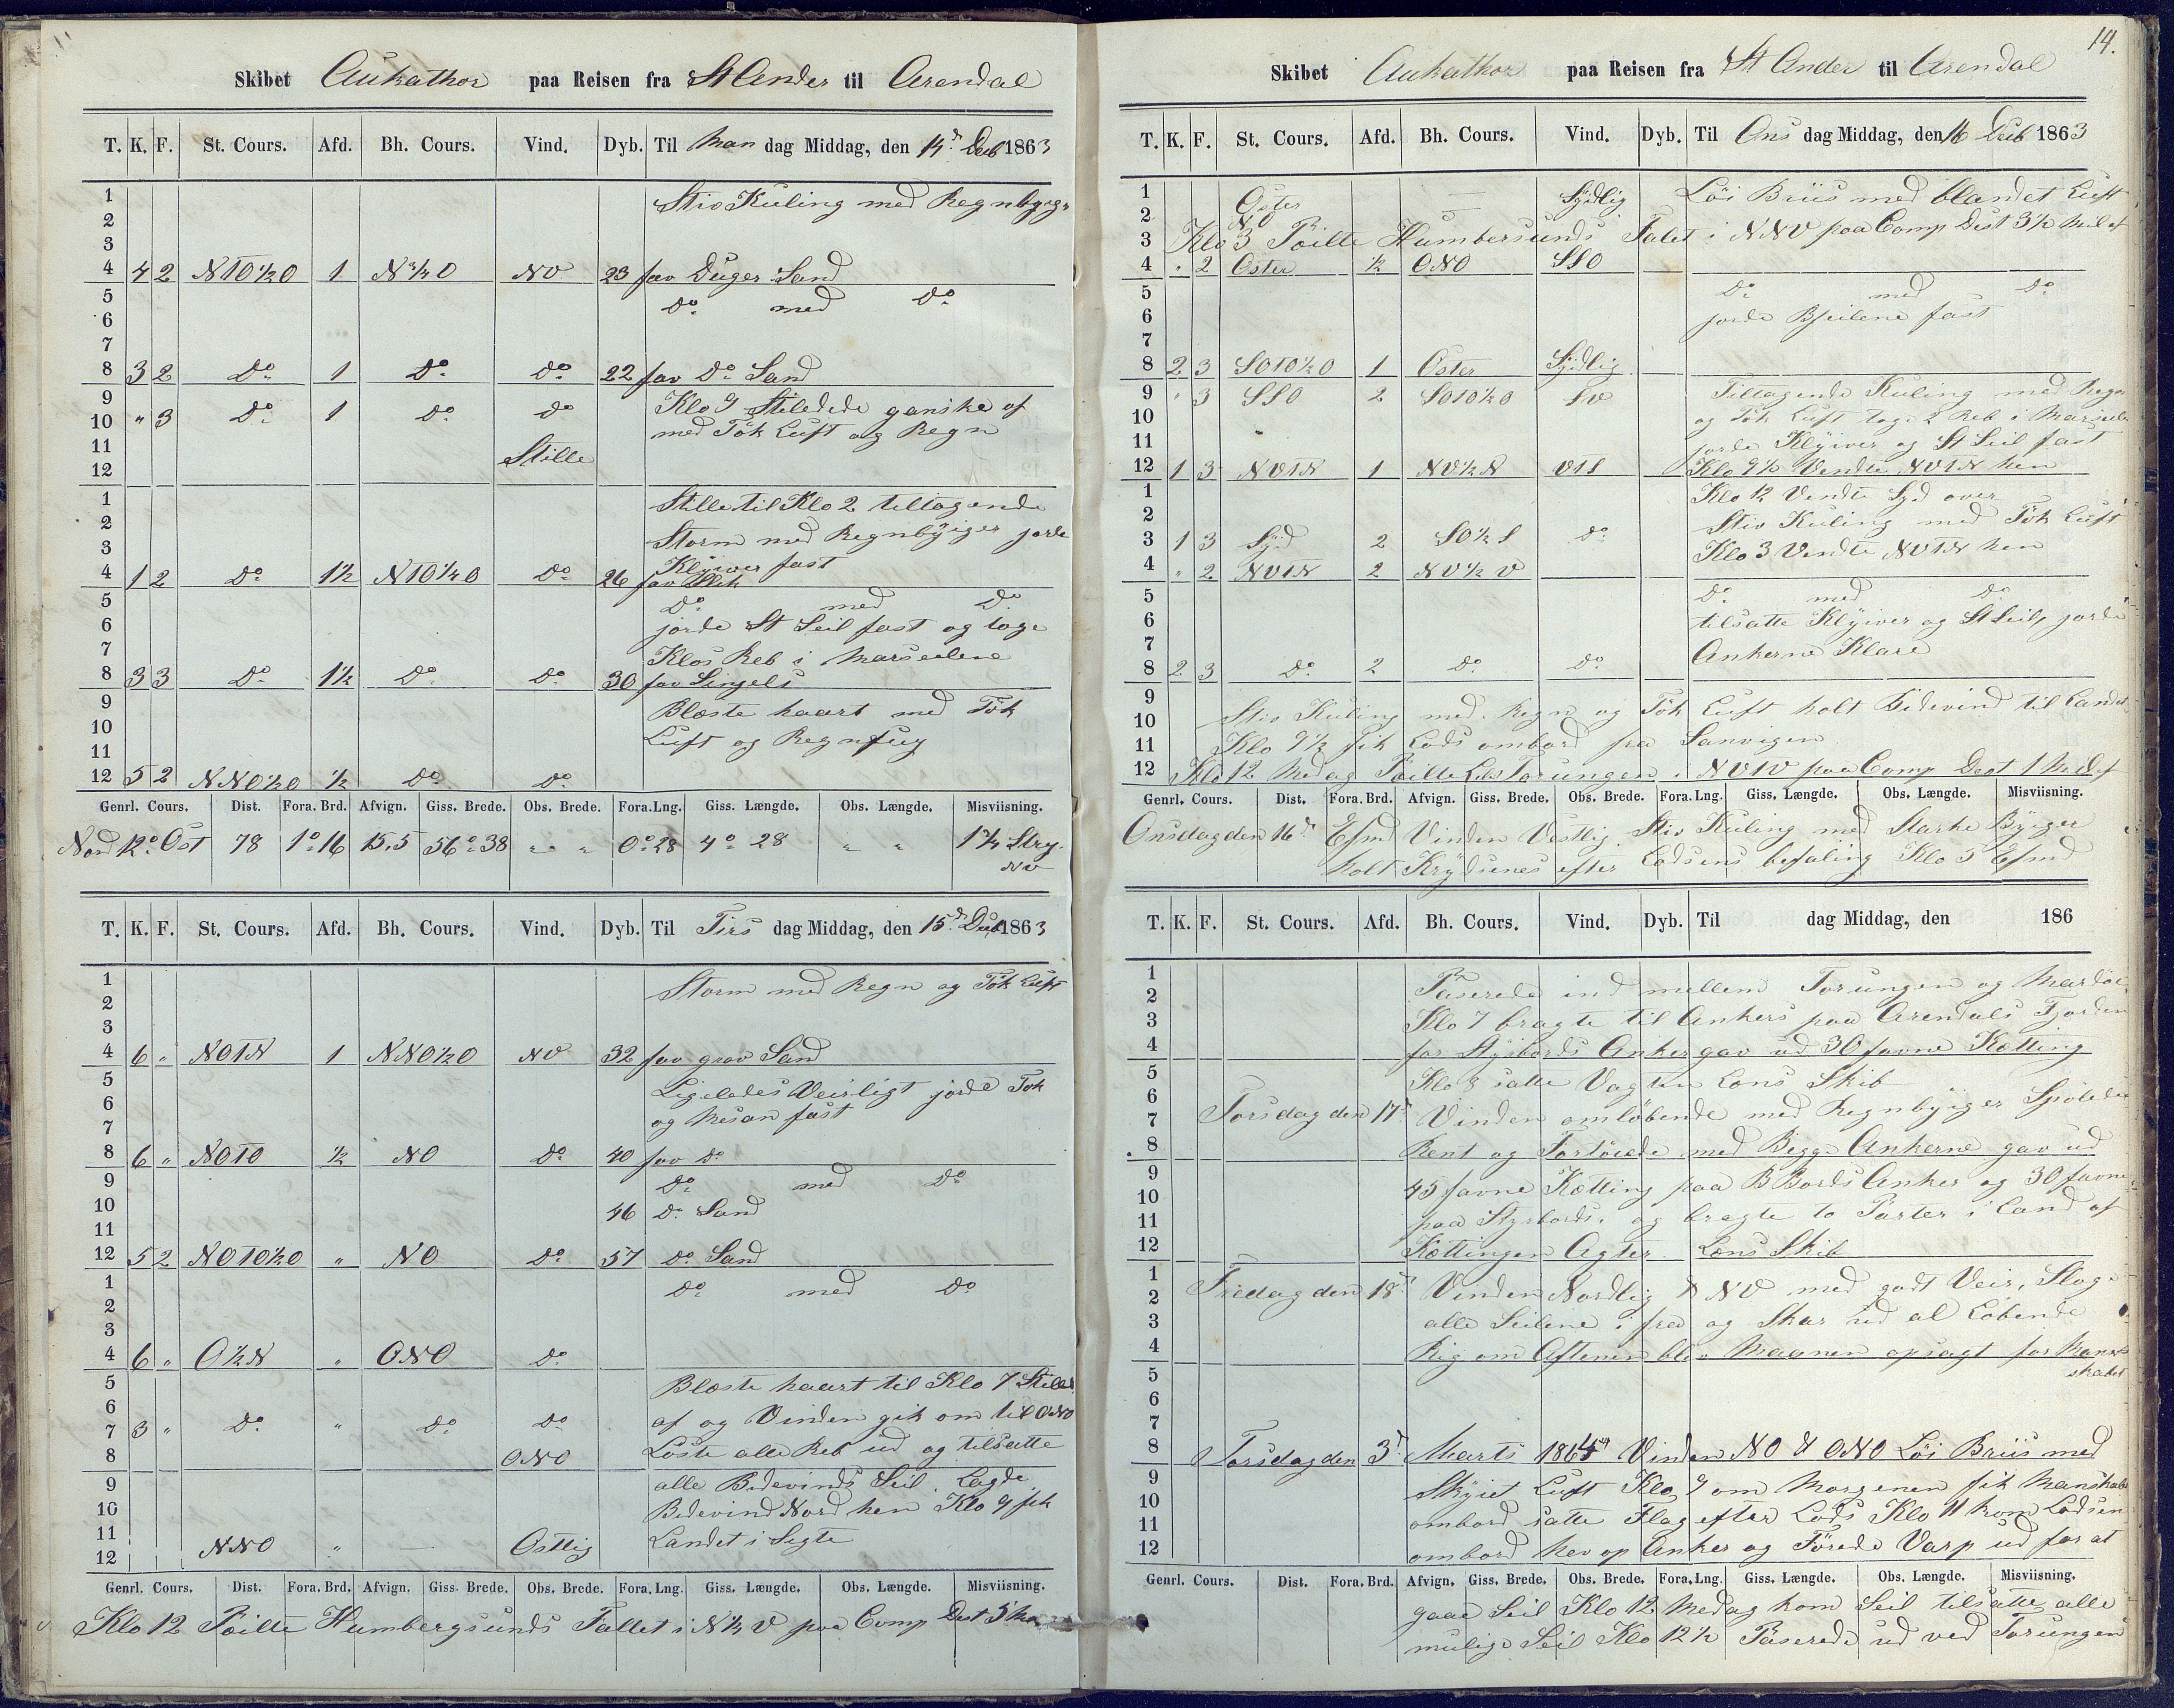 Skibet Aukathor paa Reisen fra St Ander til Arendal
T. K. F. St. Cours. Afd. Bh. Cours. Vind. Dyb. Til Man dag Middag, den 14d Decb 1863
1 Stiv Kuling med Regnbyger
2
3
4 4 2 N10½O 1 N¾O NV 23 fav Duger Sand
5 Do med Do
6
7
8 3 2 Do 1 Do Do 22 fav Do Sand
9 Klo 9 Stilede ganske af
10 " 3 Do 1 Do Do med Tök Luft og Regn
11 Stille
12
1 Stille til Klo 2 tiltagende
2 Storm med Regnbÿiger jorde
3 Klÿiver fast
4 1 2 Do 1½ N10¼O Do 26 fav Slik
5 Do med Do
6 jorde St Seil fast og toge
7 Klos Reb i Marseilene
8 3 3 Do 1½ Do Do 30 fav Singels
9 Blæste haart med Tök
10 Luft og Regnfug
11
12 5 2 NNO½O ½ Do Do
Genrl. Cours. Dist. Fora. Brd. Afvign. Giss. Brede. Obs. Brede. Fora.Lng. Giss. Længde. Obs. Længde. Misviisning.
Nord 12° Ost 78 1°16 15,5 56°38 " " 0°28 4° 28 " " 1¾ Strg.
NV
T. K. F. St. Cours. Afd. Bh. Cours. Vind. Dyb. Til Tirs dag Middag, den 15d Decb 1863
1 Storm med Regn og Tök Luft
2
3
4 6 " NO1N 1 NNO½O NV 32 fav grov Sand
5 Ligeledes Veirligt jorde Fok
6 og Mesan fast
7
8 6 " NO1O ½ NO Do 40 fav Do
9 Do med Do
10 46 Do Sand
11
12 5 2 NO1O½O " NO Do 57 Do Sand
1 Do med Do
2
3
4 6 " O½N " ONO Do
5 Blæste haart til Klo 7 Stilede
6 af og Vinden gik om til ONO
7 3 " Do " Do Do
8 ONO Löste alle Reb ud og tilsatte
9 alle Bidevinds Seil. Lagde
10 Bidevind Nord hen Klo 9 fik
11 NNO " — Osttig Landet i Sigte
12
Genrl. Cours. Dist. Fora. Brd. Afvign. Giss. Brede. Obs. Brede. Fora.Lng. Giss. Længde. Obs. Længde. Misviisning.
Klo 12 Peilte Humbergsunds Fallet i N¼V paa Comp Dest 5 M
14.
Skibet Aukathor paa Reisen fra St Ander til Arendal
T. K. F. St. Cours. Afd. Bh. Cours. Vind. Dyb. Til Ons dag Middag, den 16 Decb 1863
1 Oster — Sydlig Löi Briis med blandet Luft
2 NO —
3 Klo 3 Peilte Humbersunds Falet i NNV paa Comp Dest 3½ Mil af
4 " 2 Oster ½ ONO SSO
5 Do med Do
6 jorde Bseilene fast
7
8 2 3 SO1O½O 1 Oster Sydlig
9 " 3 SSO 2 SO1O½O SV Tiltagende Kuling med Regn
10 og Tök Luft tog 2 Reb i Marseilene
11 jorde Klÿiver og St Seil fast
12 1 3 NV1N 1 NV½N V1S Klo 9½ Vendte NV1N hen
1 Klo 12 Vendte Syd over
2 Stiv Kuling med Tök Luft
3 1 3 Syd 2 SO½S Do Klo 3 Vendte NV1N hen
4 " 2 NV1N 2 NV½V
5 Do med Do
6 tilsatte Klÿiver og St Seil, jorde
7 Ankerne Klare
8 2 3 Do 2 Do Do
9
10 Stiv Kuling med Regn og Tök Luft holt Bidevind til Landet
11 Klo 9½ fik Lods ombord fra Sanvigen
12 Klo 12 Medag Peilte Lils Torungen i NV1V paa Comp Dest 1 Mil af
Genrl. Cours. Dist. Fora. Brd. Afvign. Giss. Brede. Obs. Brede. Fora.Lng. Giss. Længde. Obs. Længde. Misviisning.
Onsdag den 16d Efmd Vinden Vestlig. Stiv Kuling med Starke Bÿger
holt Krÿdsenes efter Lodsens befaling Klo 5 Efmd
T. K. F. St. Cours. Afd. Bh. Cours. Vind. Dyb. Til dag Middag, den 186
1 Paserede ind mellem Torungen og Mardöe
2
3 Klo 7 bragte til Ankers paa Arendals Fjorden
4 for Stÿrbords Anker gav ud 30 favne Kætting
5 Klo 8 satte Vagten Lens Skib
6
7 Torsdag den 17d Vinden omlöbende med Regnbÿiger Spölede
8 Rent og Fortöiede med Begge Ankerne gav ud
9 45 favne Kætting paa BBords Anker og 30 favne
10
11 paa Styrbords. og bragte to Parter i Land af
12 Kættingen Agter. Lens Skib
1
2 Fredag den 18d Vinden Nordlig & NV med godt Veir, Slog
3 alle Seilene i fra og Skar ud al Löbende
4 Rig om Aftenen blev Maanen opsagt for Mand
5 skabet
6
7
8 Torsdag den 3d Marts 1864 Vinden NO & ONO Löi Briis med
9 Skÿiet Luft Klo 9 om Morgenen fik Manskabet
10
11 ombord satte Flag efter Lods Klo 11 kom Lodsen
12 ombord hev op Anker og Förede Varp ud for at
Genrl. Cours. Dist. Fora. Brd. Afvign. Giss. Brede. Obs. Brede. Fora.Lng. Giss. Længde. Obs. Længde. Misviisning.
gaae Seil Klo 12 Medag kom Seil tilsatte alle
mulige Seil Klo 12½ Paserede ud ved Torungen